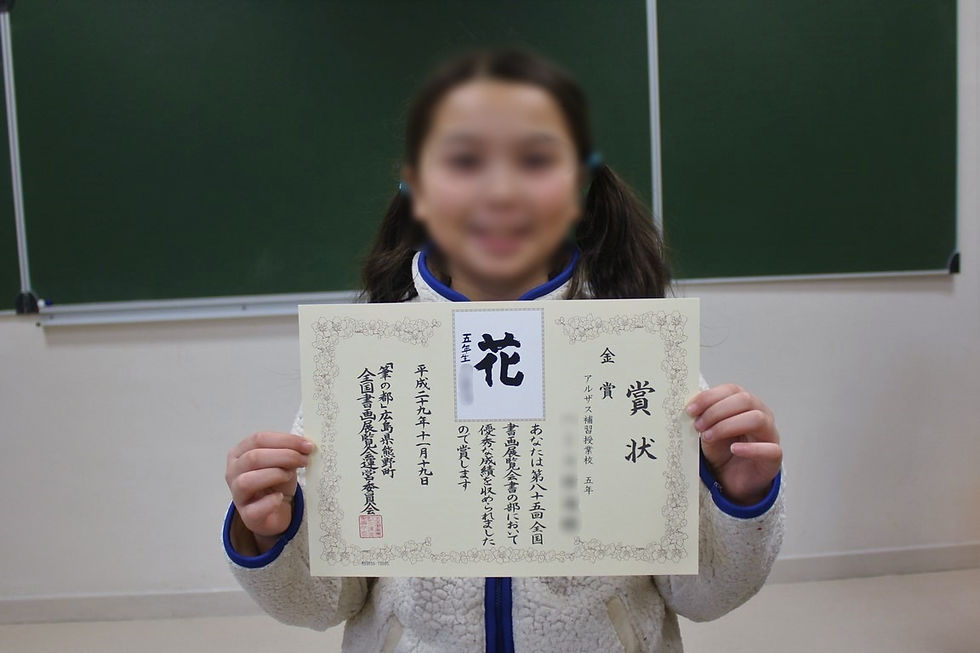 賞状
金賞
アルザス補習授業校 五年
あなたは第八十五回全国
書画展覧会書の部において
優秀な成績を収められました
ので賞します
花
五年生
平成二十九年十一月十九日
「筆の都」広島県熊野町
全国書画展覧会運営委員会